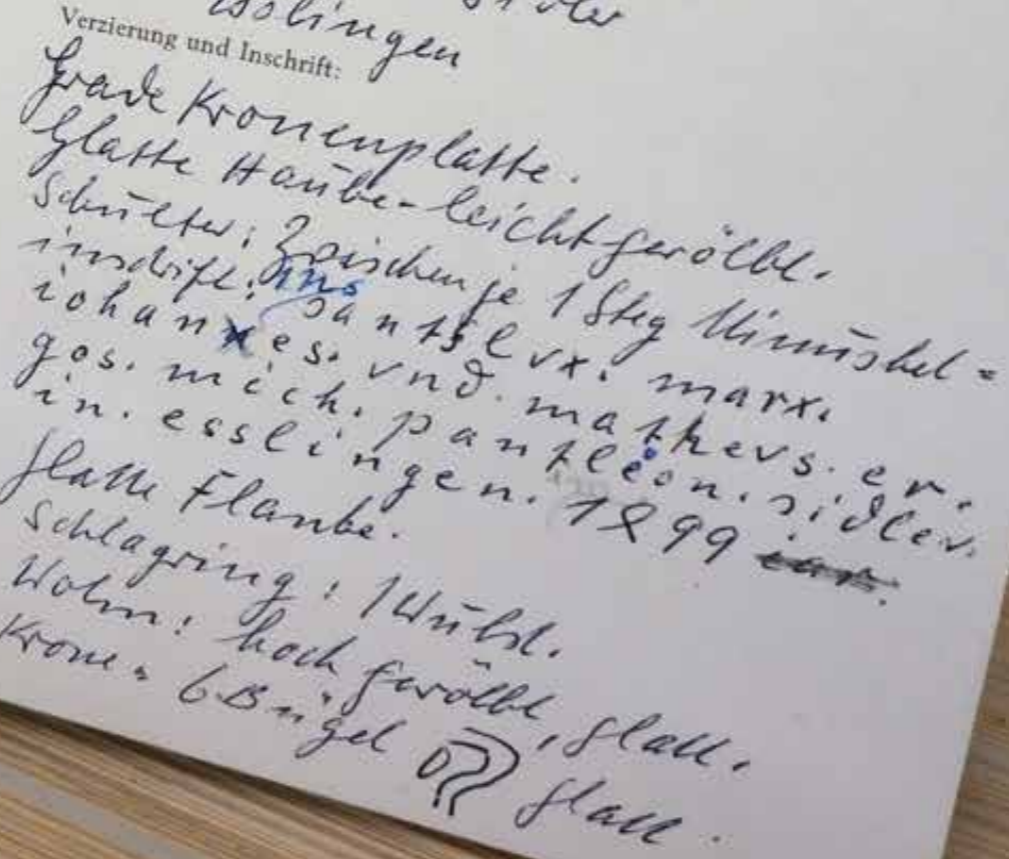 Verzierung und Inschrift:
Grade Kronenplatte.
Glatte Haube - leicht gewölbt.
Schulter: Zwischen je 1 Steg Minuskel =
inschrift: lvx. marx.
iohannes. vnd. mathevs. er.
gos. mich. pantleon. sidler.
in. esslingen. 1899
glatte Flanke.
Schlagring: 1 Wulst.
Wolm: hoch gewölbt, glatt.
Krone: 6 Bügel glatt.